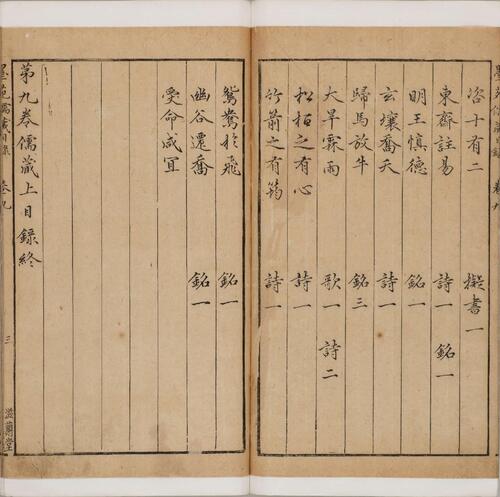 咨十有二 擬書一
東齋註易 詩一 銘一
明王慎德 銘一
玄壤喬天 詩一
歸馬放牛 銘三
大旱霖雨 歌一 詩二
松柏之有心 詩一
竹箭之有筠 詩一
鴛鴦於飛 銘一
幽谷遷喬 銘一
受命咸宜
第九卷儒藏上目錄終
卷九
三
滋蘭堂